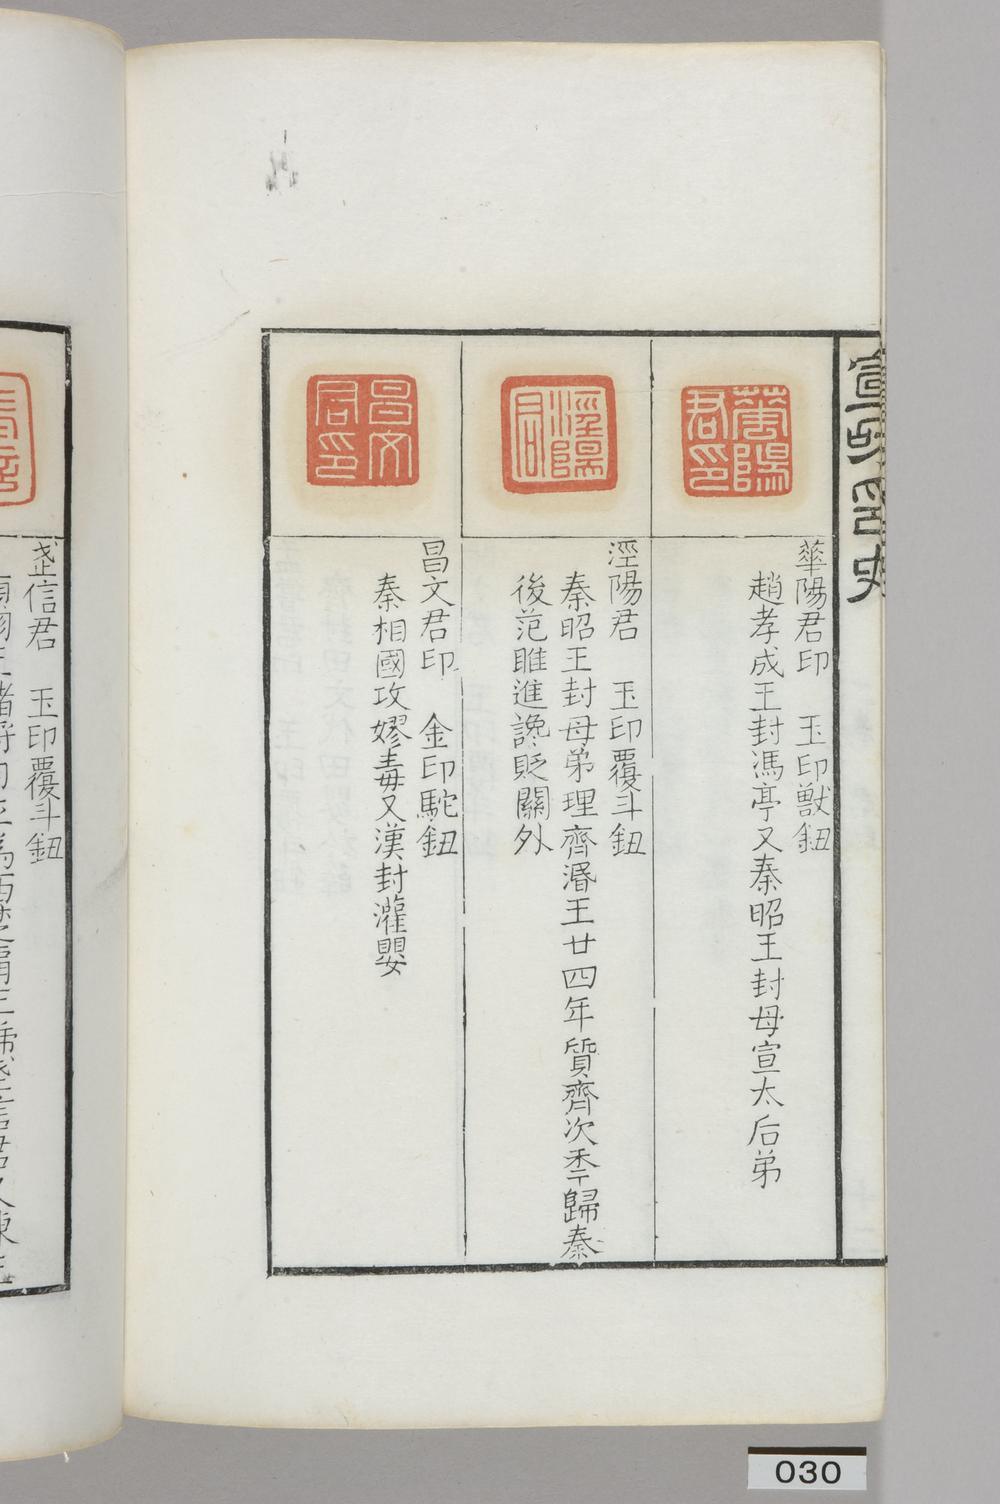 宣和印史
華陽君印
華陽君印　玉印獸鈕
趙孝成王封馮亭又秦昭王封母宣太后弟
涇陽君
涇陽君　玉印覆斗鈕
秦昭王封母弟理齊湣王廿四年質齊次秊歸秦
後范睢進讒貶關外
昌文君印
昌文君印　金印駝鈕
秦相國攻嫪毐又漢封灌嬰
武信君　玉印覆斗鈕
030